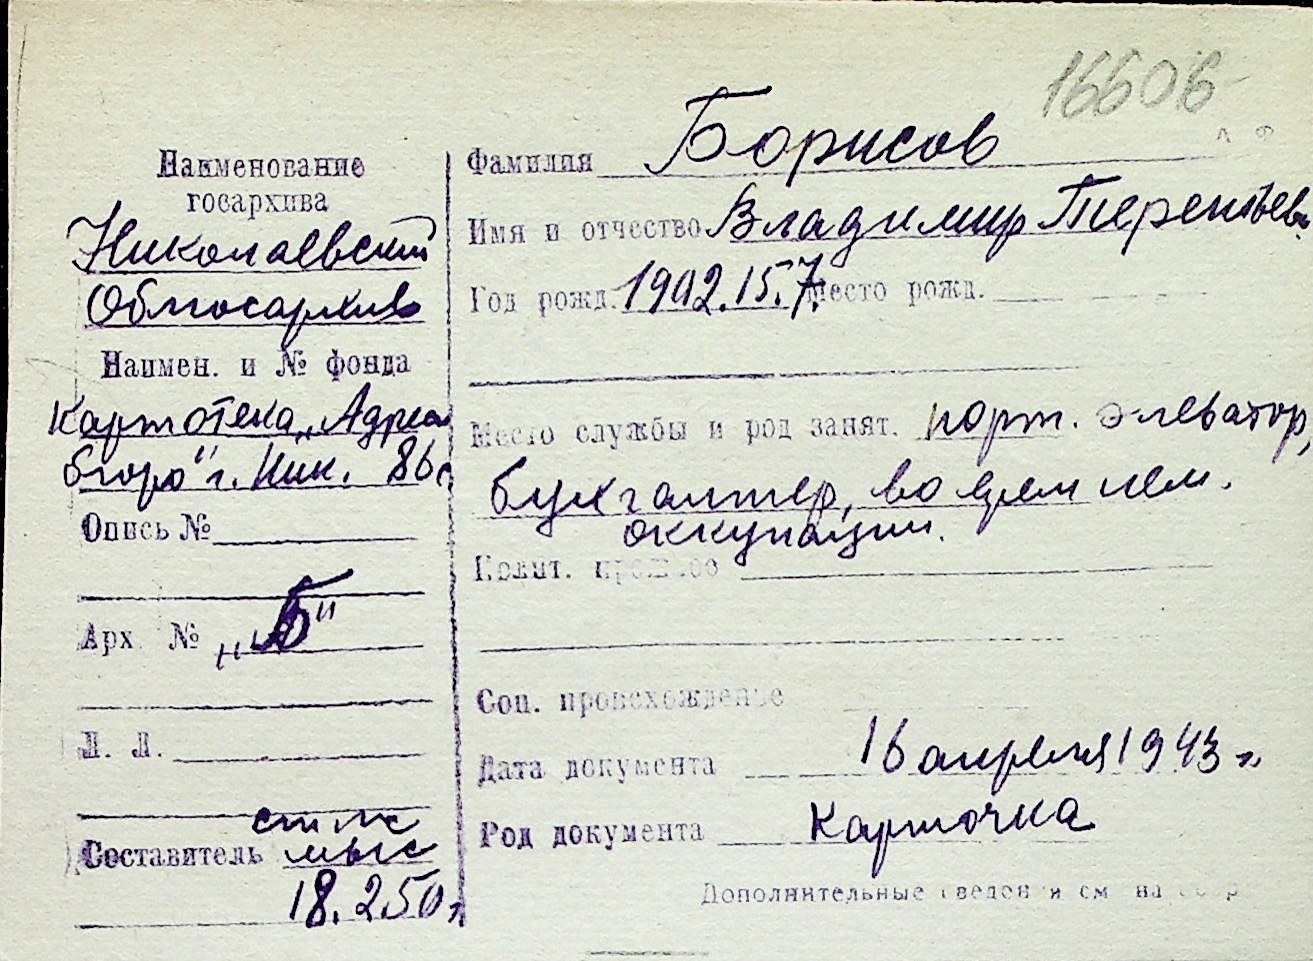 16606
Наименование
госархива
Николаевский
Облгосархив
Наимен. и № фонда
Картотека „Адрес
бюро" г. Ник. 86с
Опись №
Арх. № „Б"
Л. Л.
Составитель
18.2.50 г.
Фамилия Борисов
Имя и отчество Владимир Терентьев.
Год рожд. 1902.15.7. Место рожд.
Место службы и род занят. порт. элеватор,
бухгалтер, во врем нем.
оккупации.
Полит. прошлое
Соц. происхождение
Дата документа 16 апреля 1943 г.
Род документа Карточка
Дополнительные сведения см на обор